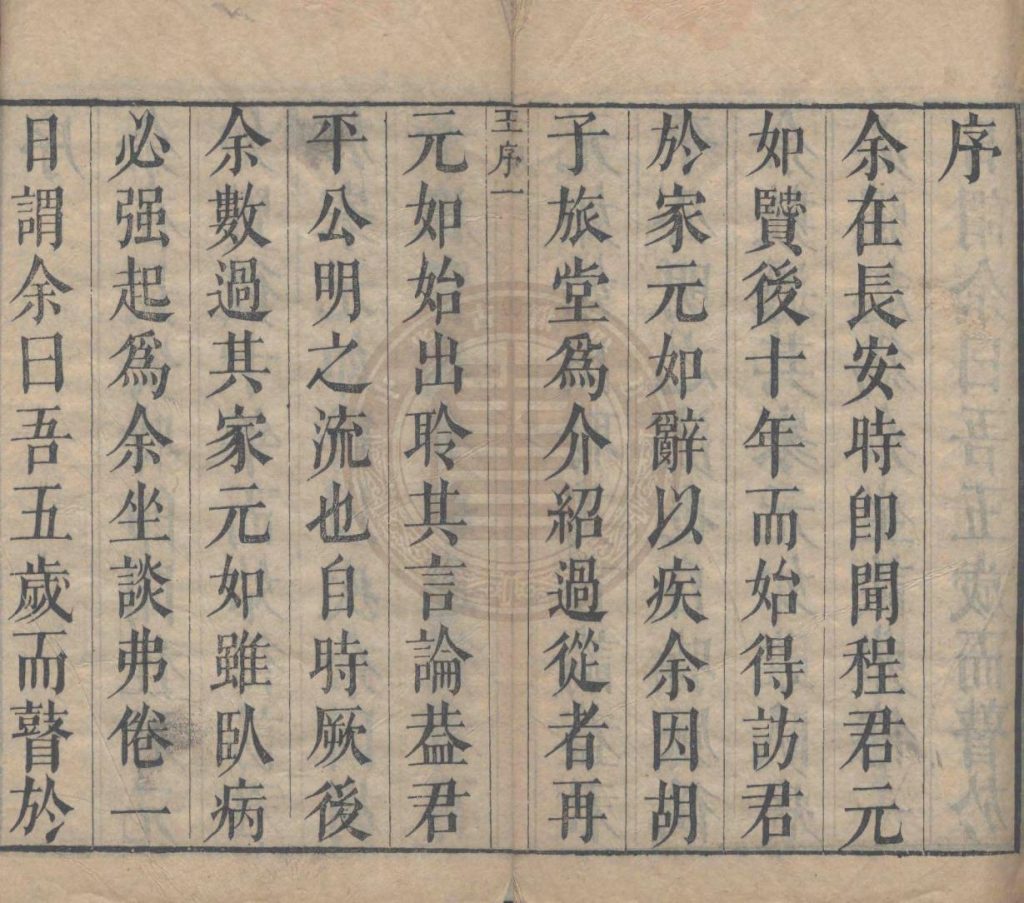 序
余在長安時卽聞程君元
如贒後十年而始得訪君
於家元如辭以疾余因胡
子旅堂爲介紹過從者再
王序一
元如始出聆其言論葢君
平公明之流也自時厥後
余數過其家元如雖臥病
必强起爲余坐談弗倦一
日謂余曰吾五歲而瞽於